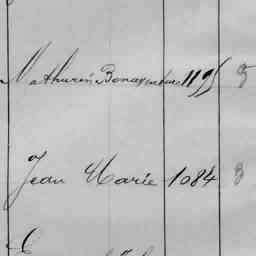 Mathurin Bonaventure 1195
Jean Marie 1084